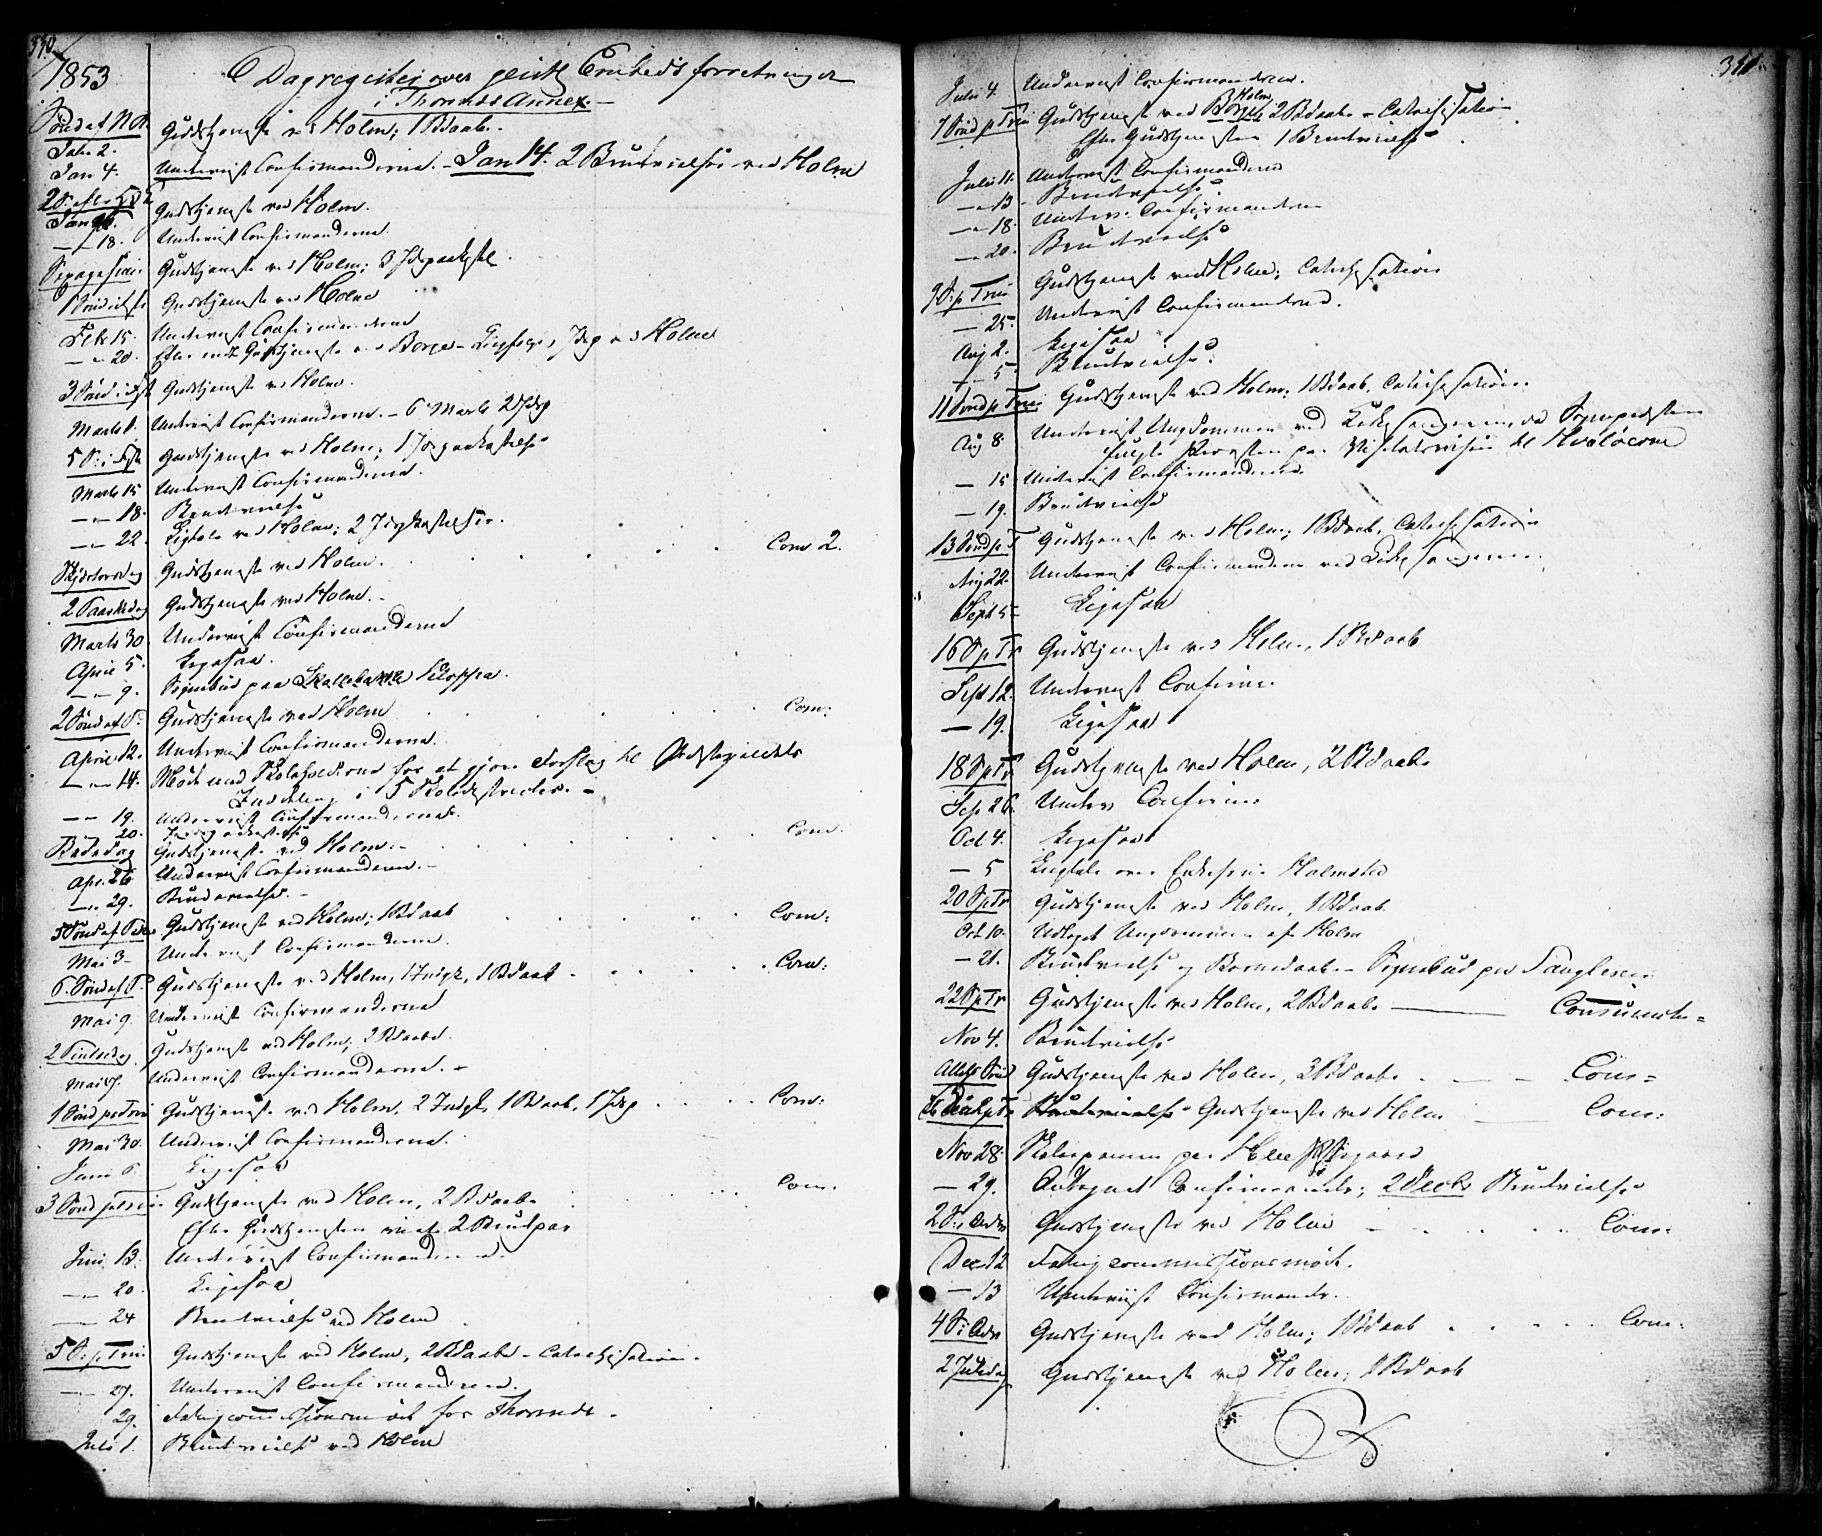 340.
1853
Dagregister over geistl Embedsforretninger
i Thorsnes Annex. —
Sønd af N. A.
Jan. 2. Gudstjeneste ved Holm; 1 B.daab. —
Jan 4. Underviist Confirmanderne. — Jan 14. 2 Brudevielser ved Holm
Gudstjeneste ved Holm.
— " 18. Underviist Confirmanderne.
Sexagesima Gudstjeneste ved Holm; 3 Jdpaakast.
1 Sønd i Fast Gudstjeneste ved Holm
Feb 15. Underviist Confirmanderne
— " 20. Efter endt Gudstjeneste ved Borge Jdp ved Holm
3 Sønd i Fast Gudstjeneste ved Holm.
Marts 1. Underviist Confirmanderne. — 6 Marts 2 Jdp
5 S: i Fast Gudstjeneste ved Holm; 1 Jordpaakastelse
Marts 15 Underviist Confirmanderne.
— " — 18. Brudevielse
— " — 22. Ligtale ved Holm; 2 Jdpkastelser.
Skjertorsdag Gudstjeneste ved Holm. Com 2.
2 Paaskedag Gudstjeneste ved Holm. —
Marts 30. Underviist Confirmanderne
April 5. Ligesaa.
— " — 9. Sognebud paa
2 Sønd ef P. Gudstjeneste ved Holm Com:
April 12. Underviist Confirmanderne.
— " — 14. Møde med Skoleholderne for at gjøre Forslag til Præstegjeldets
Inddeling i 5 Skoledistricter. —
— " — 19. Underviist Confirmanderne.
20. Jordpaakastelse
Bededag Gudstjeneste ved Holm. — Com.
Apr. 26 Underviist Confirmanderne. —
— " 29. Brudevielse. —
Gudstjeneste ved Holm; 1 B.daab Com:
Mai 3 — Underviist Confirmanderne.
6. Sønd ef P. Gudstjeneste ved Holm, 1 Indgk, 1 B.daab Com:
Mai 9. Underviist Confirmanderne
2 Pintsedag Gudstjeneste ved Holm; 2 B.daabe.
Mai 17. Underviist Confirmanderne. —
1 Sønd p Trin Gudstjeneste ved Holm, 2 Indgk, 1 B.daab, 1 Jdp Com:
Mai 30. Underviist Confirmanderne.
Juni 6. Ligesaa
3 Sønd p Trin Gudstjeneste ved Holm, 2 B.daabe Com.
Efter Gudstjenesten viede 2 Brudpar
Juni 13. Underviist Confirmanderne.
— " — 20. Ligesaa
— 24 Brudevielse ved Holm
5 S: p Trin: Gudstjeneste ved Holm, 2 B.daabe — Catechisation. —
— 27. Underviist Confirmanderne.
29. Fattigcommissionsmøde for Thorsnes. —
Juli 1. Brudevielse ved Holm
341.
Juli 4. Underviist Confirmanderne.
7 Sønd p Trin Gudstjeneste ved Borge Holm, 2 B.daabe — Catechisation
Efter Gudstjenesten 1 Brudevielse
Juli 11. Underviist Confirmanderne
— " 13. Brudevielse.
— " 18. Underv. Confirmanderne
— " 20. Brudevielse
9 S: p Trin Gudstjeneste ved Holm; Catechisation
— 25. Underviist Confirmanderne.
Aug 2. Ligesaa
— " 5. Brudevielse.
11 Sønd p Trin Gudstjeneste ved Holm; 1 B.daab. Catechisation.
Aug 8. Underviist Ungdommen ved Kirkesangeren, da Sognepræsten
fulgte Provsten paa Visitatsreisen til Hvaløerne
— 15 Underviist Confirmanderne
— 19. Brudevielse
13 Sønd p T Gudstjeneste ved Holm; 1 B.daab. Catechisation
Aug 22. Underviist Confirmanderne ved Kirkesangeren.
Sept 5 — Ligesaa
16 S p Tr Gudstjeneste ved Holm, 1 B.daab
Sept 12. Underviist Confirm.
— 19. Ligesaa
18 S p Tr Gudstjeneste ved Holm, 2 B.daabe
Sep 26. Underv Confirm
Oct 4. Ligesaa
— 5 Ligtale over Holmsted
20 S p Tr Gudstjeneste ved Holm, 1 B.daab
Oct 10. Udtaget Ungdommen af Holm
— 21. Brudevielse og Barnedaab. — Sognebud paa
22 S p Tr Gudstjeneste ved Holm, 2 B.daabe — Communion =
Nov 4. Brudevielse
Alleh Sønd Gudstjeneste ved Holm, 3 B.daabe Com =
Brudevielse Gudstjeneste ved Holm Com:
Nov 28. Skoleexamen paa
— 29. Antegnet Confirmander; 2 Decbr Brudevielse
2 S: i Adv Gudstjeneste ved Holm Com:
Dec 12 Fattigcommissionsmøde.
— 13 Underviist Confirmandr.
4 S: i Adv Gudstjeneste ved Holm; 1 B.daab Com:
2 Juledag Gudstjeneste ved Holm; 1 B.daab